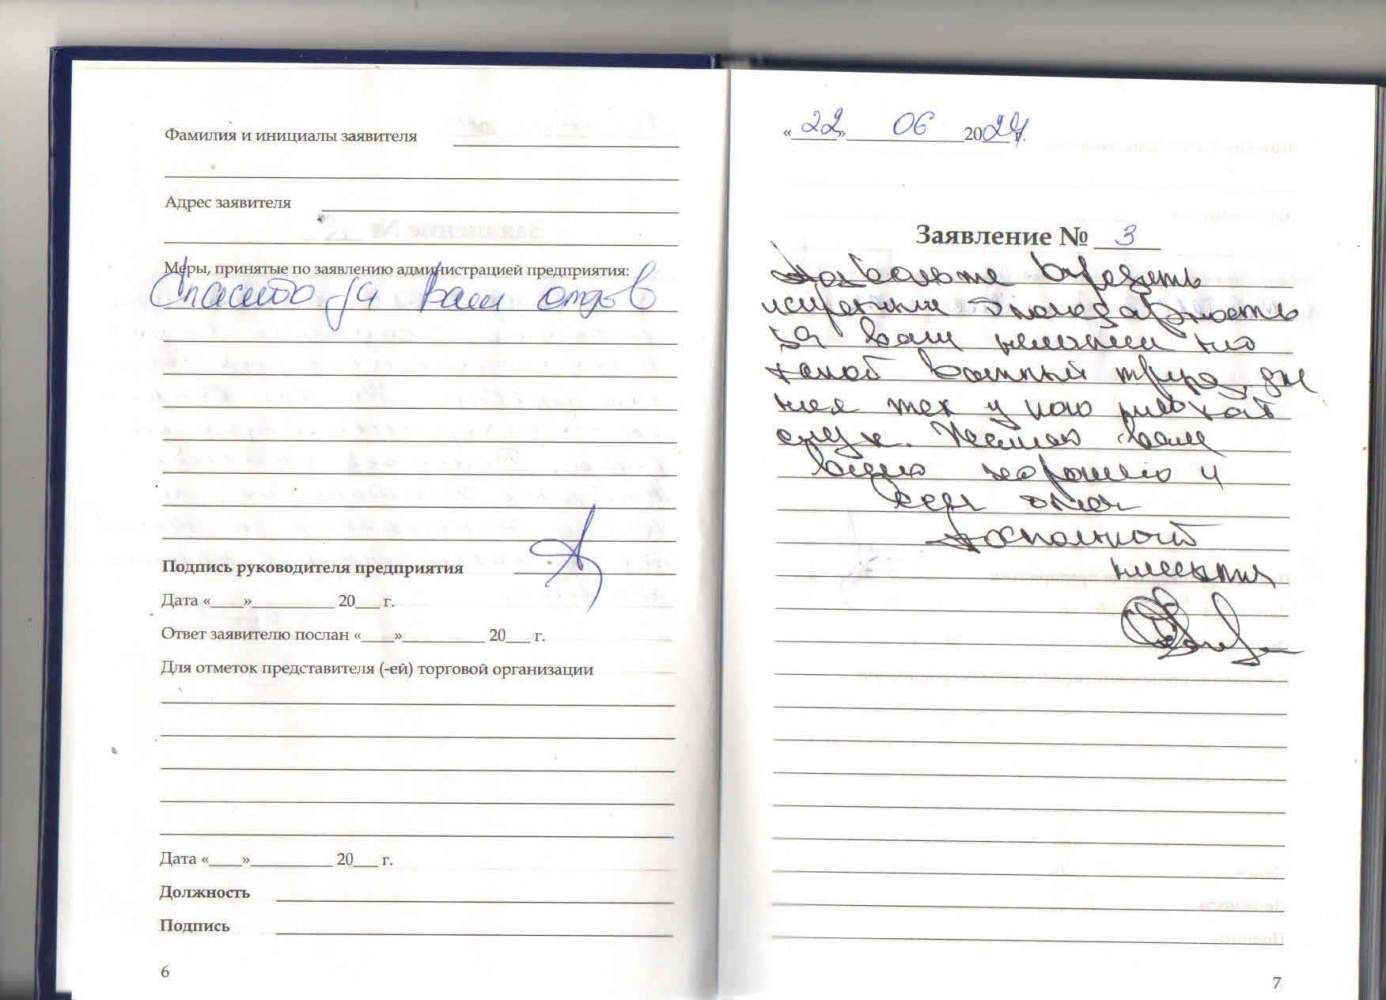 Фамилия и инициалы заявителя
Адрес заявителя
Меры, принятые по заявлению администрацией предприятия:
Спасибо за Ваш отзыв
Подпись руководителя предприятия
Дата «___»__________ 20___ г.
Ответ заявителю послан «___»__________ 20___ г.
Для отметок представителя (-ей) торговой организации
Дата «___»__________ 20___ г.
Должность
Подпись
6
«22» 06 2024 г.
Заявление № 3
Позвольте выразить
благодарность
за ваш
важный труд, для
меня так у кого плохой
слух. Желаю вам
всего хорошего и
7